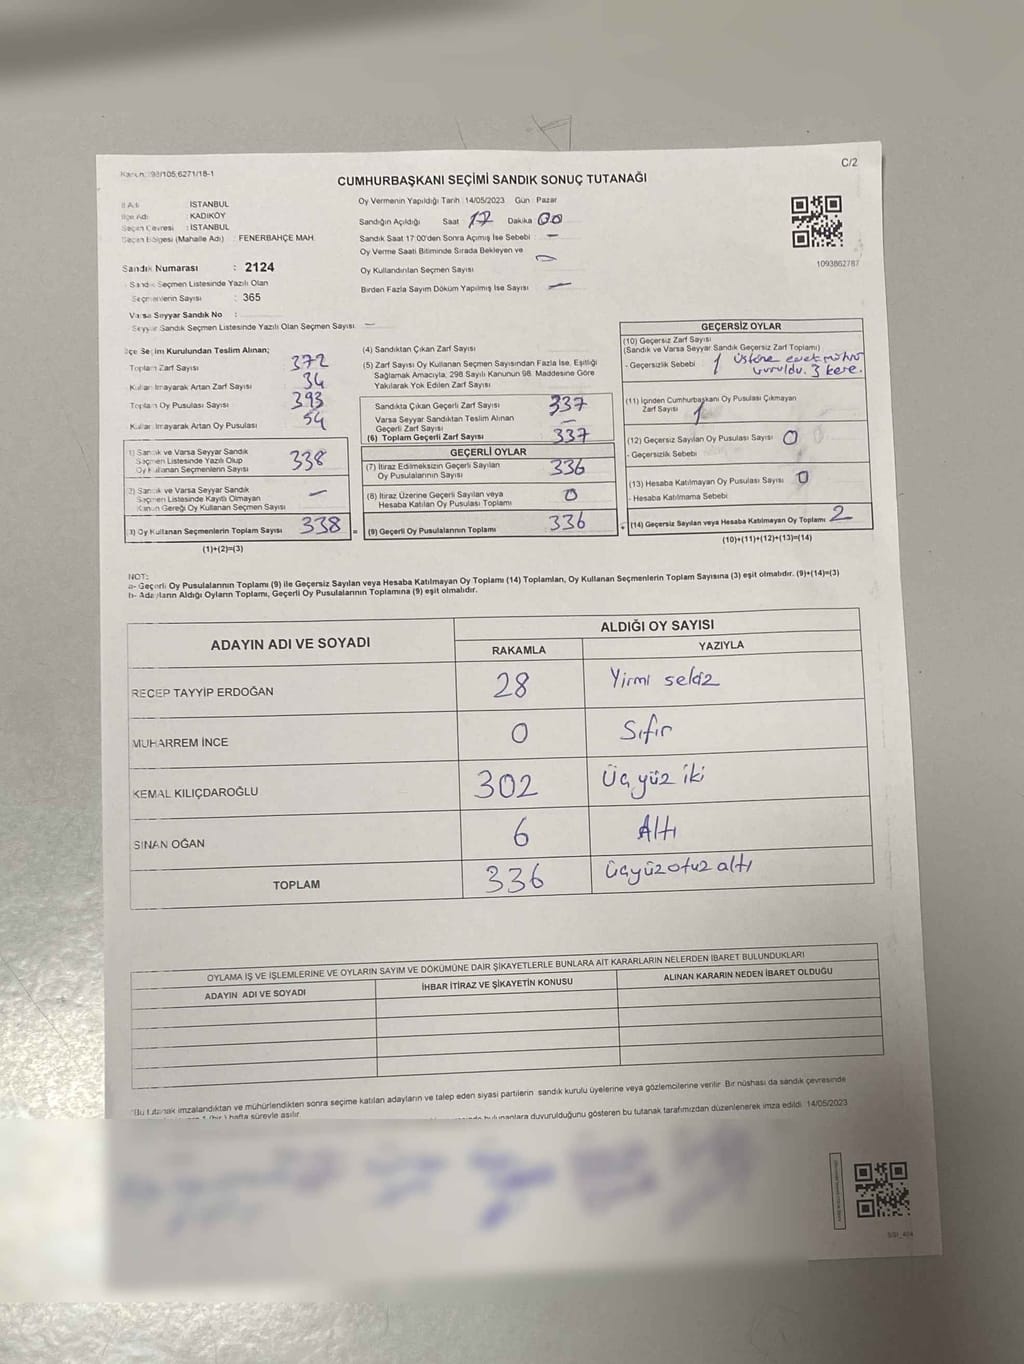 C/2
CUMHURBAŞKANI SEÇİMİ SANDIK SONUÇ TUTANAĞI
İl Adı : İSTANBUL
İlçe Adı : KADIKÖY
Seçim Çevresi : İSTANBUL
Seçim Bölgesi (Mahalle Adı) : FENERBAHÇE MAH.
Sandık Numarası : 2124
Sandık Seçmen Listesinde Yazılı Olan
Seçmenlerin Sayısı : 365
Varsa Seyyar Sandık No :
Seyyar Sandık Seçmen Listesinde Yazılı Olan Seçmen Sayısı: —
Oy Vermenin Yapıldığı Tarih :14/05/2023 Gün : Pazar
Sandığın Açıldığı Saat 17 Dakika 00
Sandık Saat 17:00'den Sonra Açılmış İse Sebebi : —
Oy Verme Saati Bitiminde Sırada Bekleyen ve
Oy Kullandırılan Seçmen Sayısı
Birden Fazla Sayım Döküm Yapılmış İse Sayısı : —
1093862787
İlçe Seçim Kurulundan Teslim Alınan;
Toplam Zarf Sayısı 372
Kullanılmayarak Artan Zarf Sayısı 34
Toplam Oy Pusulası Sayısı 393
Kullanılmayarak Artan Oy Pusulası 54
1) Sandık ve Varsa Seyyar Sandık
Seçmen Listesinde Yazılı Olup
Oy Kullanan Seçmenlerin Sayısı 338
2) Sandık ve Varsa Seyyar Sandık
Seçmen Listesinde Kayıtlı Olmayan
Kanun Gereği Oy Kullanan Seçmen Sayısı —
3) Oy Kullanan Seçmenlerin Toplam Sayısı 338 =
(1)+(2)=(3)
(4) Sandıktan Çıkan Zarf Sayısı
(5) Zarf Sayısı Oy Kullanan Seçmen Sayısından Fazla İse, Eşitliği
Sağlamak Amacıyla, 298 Sayılı Kanunun 98. Maddesine Göre
Yakılarak Yok Edilen Zarf Sayısı
Sandıkta Çıkan Geçerli Zarf Sayısı 337
Varsa Seyyar Sandıktan Teslim Alınan
Geçerli Zarf Sayısı —
(6) Toplam Geçerli Zarf Sayısı 337
GEÇERLİ OYLAR
(7) İtiraz Edilmeksizin Geçerli Sayılan
Oy Pusulalarının Sayısı 336
(8) İtiraz Üzerine Geçerli Sayılan veya
Hesaba Katılan Oy Pusulası Toplamı 0
(9) Geçerli Oy Pusulalarının Toplamı 336
GEÇERSİZ OYLAR
(10) Geçersiz Zarf Sayısı
(Sandık ve Varsa Seyyar Sandık Geçersiz Zarf Toplamı)
- Geçersizlik Sebebi 1 üstüne evet mührü
vuruldu. 3 kere.
(11) İçinden Cumhurbaşkanı Oy Pusulası Çıkmayan
Zarf Sayısı 1
(12) Geçersiz Sayılan Oy Pusulası Sayısı 0
- Geçersizlik Sebebi
(13) Hesaba Katılmayan Oy Pusulası Sayısı 0
- Hesaba Katılmama Sebebi
+ (14) Geçersiz Sayılan veya Hesaba Katılmayan Oy Toplamı 2
(10)+(11)+(12)+(13)=(14)
NOT:
a- Geçerli Oy Pusulalarının Toplamı (9) ile Geçersiz Sayılan veya Hesaba Katılmayan Oy Toplamı (14) Toplamları, Oy Kullanan Seçmenlerin Toplam Sayısına (3) eşit olmalıdır. (9)+(14)=(3)
b- Adayların Aldığı Oyların Toplamı, Geçerli Oy Pusulalarının Toplamına (9) eşit olmalıdır.
ADAYIN ADI VE SOYADI
ALDIĞI OY SAYISI
RAKAMLA YAZIYLA
RECEP TAYYİP ERDOĞAN 28 Yirmi sekiz
MUHARREM İNCE 0 Sıfır
KEMAL KILIÇDAROĞLU 302 Üç yüz iki
SİNAN OĞAN 6 Altı
TOPLAM 336 üçyüzotuz altı
OYLAMA İŞ VE İŞLEMLERİNE VE OYLARIN SAYIM VE DÖKÜMÜNE DAİR ŞİKAYETLERLE BUNLARA AİT KARARLARIN NELERDEN İBARET BULUNDUKLARI
ADAYIN ADI VE SOYADI İHBAR İTİRAZ VE ŞİKAYETİN KONUSU ALINAN KARARIN NEDEN İBARET OLDUĞU
*Bu tutanak imzalandıktan ve mühürlendikten sonra seçime katılan adayların ve talep eden siyasi partilerin sandık kurulu üyelerine veya gözlemcilerine verilir. Bir nüshası da sandık çevresinde
hafta süreyle asılır. bulunanlara duyurulduğunu gösteren bu tutanak tarafımızdan düzenlenerek imza edildi. 14/05/2023